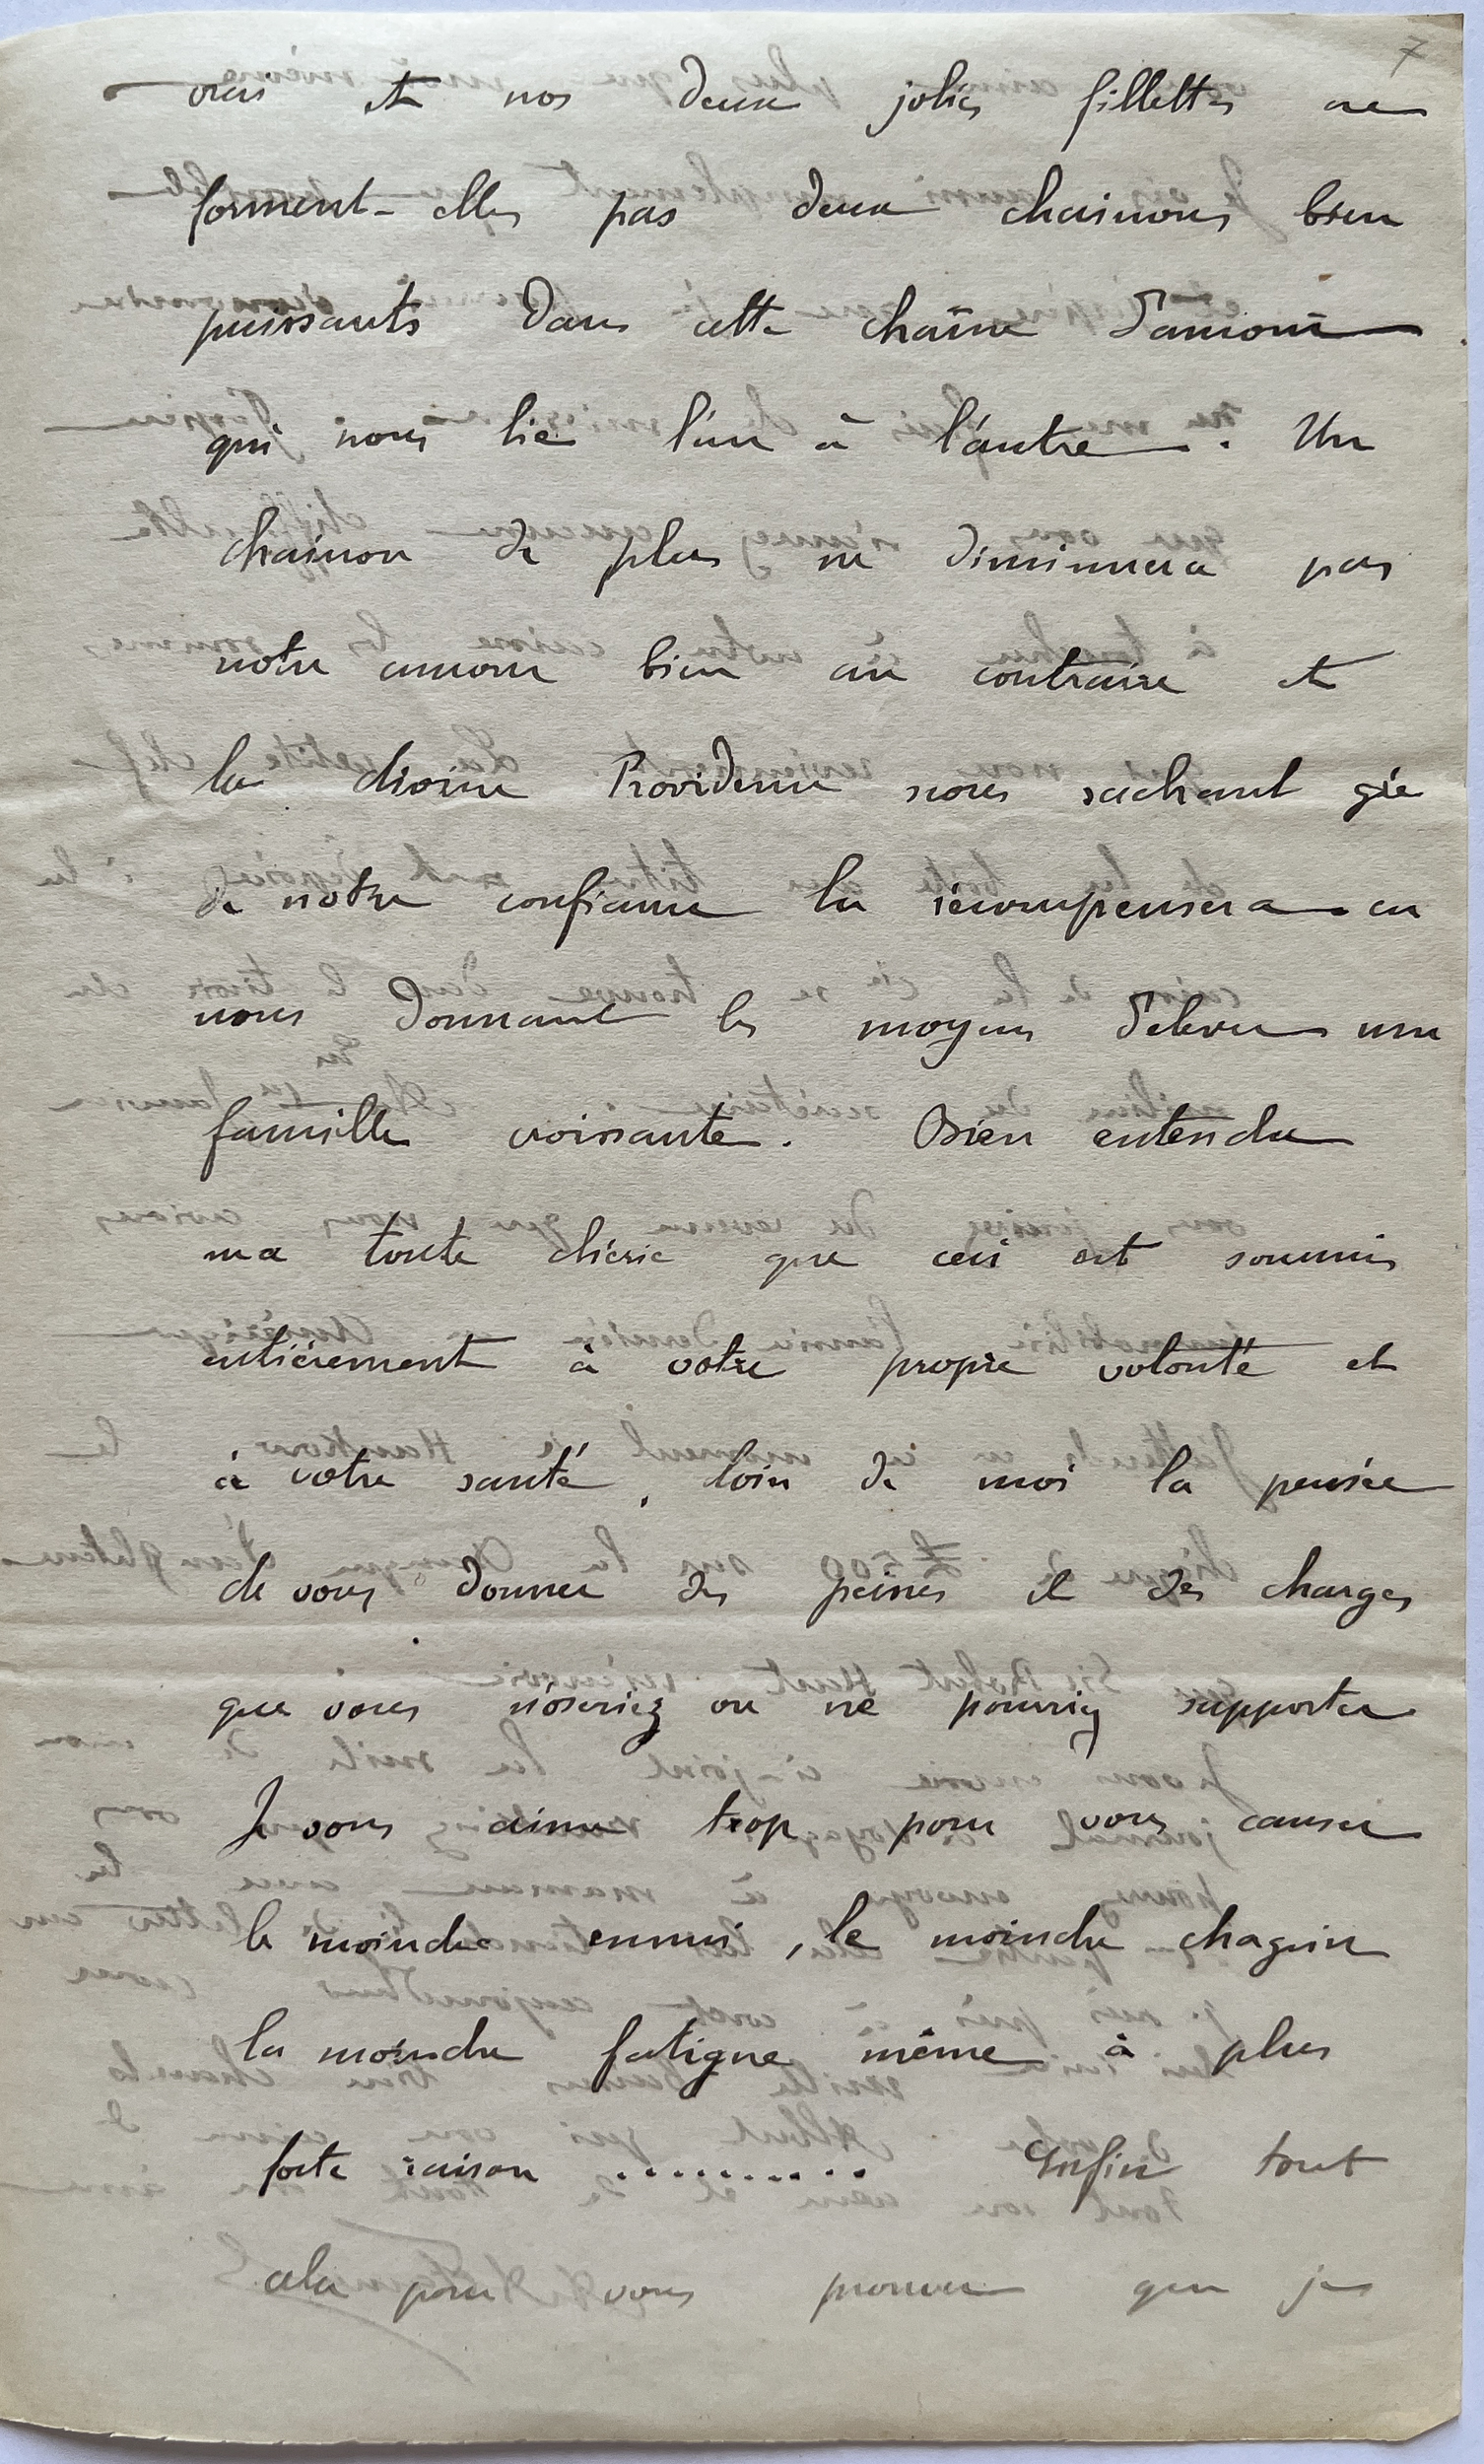 7
vrai et nos deux jolies fillettes ne
forment-elles pas deux chainons bien
puissants dans cette chaîne d'amour
qui nous lie l'un à l'autre. Un
chainon de plus ne diminuera pas
notre amour bien au contraire et
la divine Providence nous sachant gré
de notre confiance la récompensera en
nous donnant les moyens d'elever une
famille croissante. Bien entendu
ma toute chérie que ceci est soumis
entièrement à votre propre volonté et
à votre santé, loin de moi la pensée
de vous donner des peines et des charges
que vous n'oseriez ou ne pourriez supporter
Je vous aime trop pour vous causer
le moindre ennui, le moindre chagrin
la moindre fatigue même à plus
forte raison ........... Enfin tout
cela pour vous prouver que je